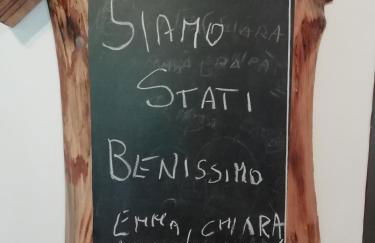 SIAMO
STATI
BENISSIMO
EMMA, CHIARA